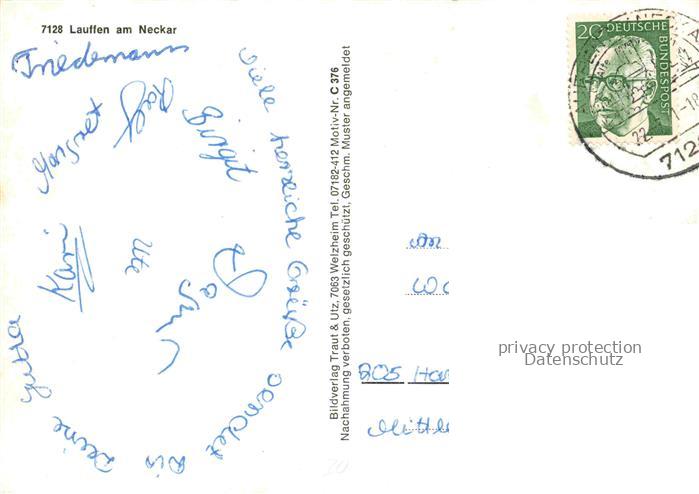 7128 Lauffen am Neckar
Friedemann
Ralf
Birgit
Margret
Kari
Ute
Viele herzliche Grüße sendet Dir Deine Jutta
Bildverlag Traut & Utz, 7063 Welzheim Tel. 07182-412 Motiv-Nr. C 376
Nachahmung verboten, gesetzlich geschützt, Geschm. Muster angemeldet
20 DEUTSCHE
BUNDESPOST
22
712
An
205 Ham
Mittl
privacy protection
Datenschutz